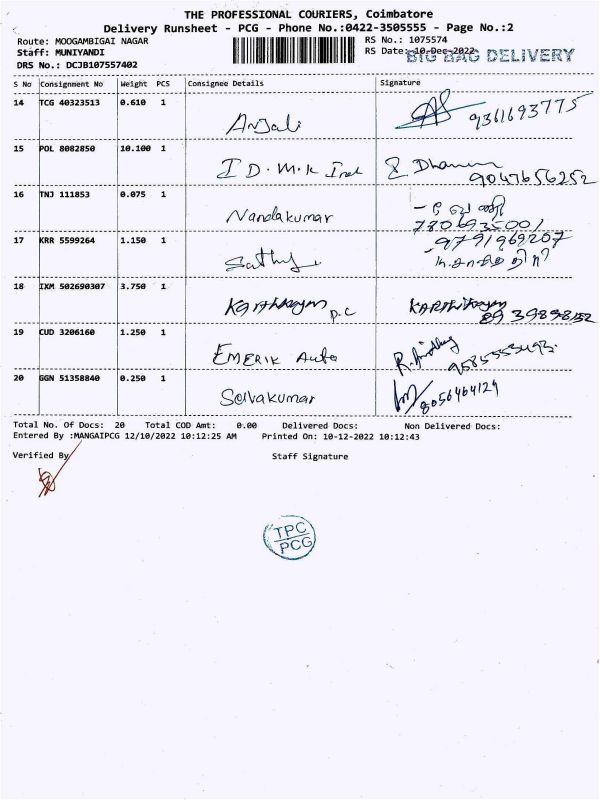 THE PROFESSIONAL COURIERS, Coimbatore
Delivery Runsheet - PCG - Phone No.:0422-3505555 - Page No.:2
Route: MOOGAMBIGAI NAGAR
RS No.: 1075574
Staff: MUNIYANDI
RS Date: 10-Dec-2022
BIG BAG DELIVERY
DRS No.: DCJB107557402
S No Consignment No Weight PCS Consignee Details Signature
14 TCG 40323513 0.610 1 Anjali 9361693775
15 POL 8082850 10.100 1 I D.M.K Ind 9047656252
16 TNJ 111853 0.075 1 Nandakumar 7806935001
17 KRR 5599264 1.150 1 Sathy 9791969207
18 IXM 502690307 3.750 1 Karthikeyan P.C KARTHIKEYAN 8939898152
19 CUD 3206160 1.250 1 EMERIK Auto 9585553493.
20 GGN 51358840 0.250 1 Selvakumar 8056464129
Total No. Of Docs: 20 Total COD Amt: 0.00 Delivered Docs: Non Delivered Docs:
Entered By :MANGAIPCG 12/10/2022 10:12:25 AM Printed On: 10-12-2022 10:12:43
Verified By Staff Signature
TPC
PCG